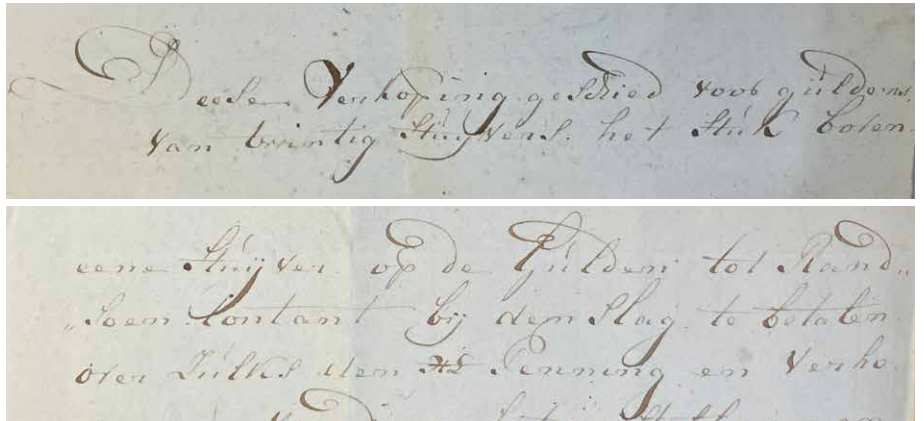 Deese Verkoping geschied voor guldens,
van twintig Stuyvers. het Stuk boven
eene Stuijver op de Gulden tot Rand„
„soen Contant bij den Slag te betalen
over Zulks den Penning en Verho